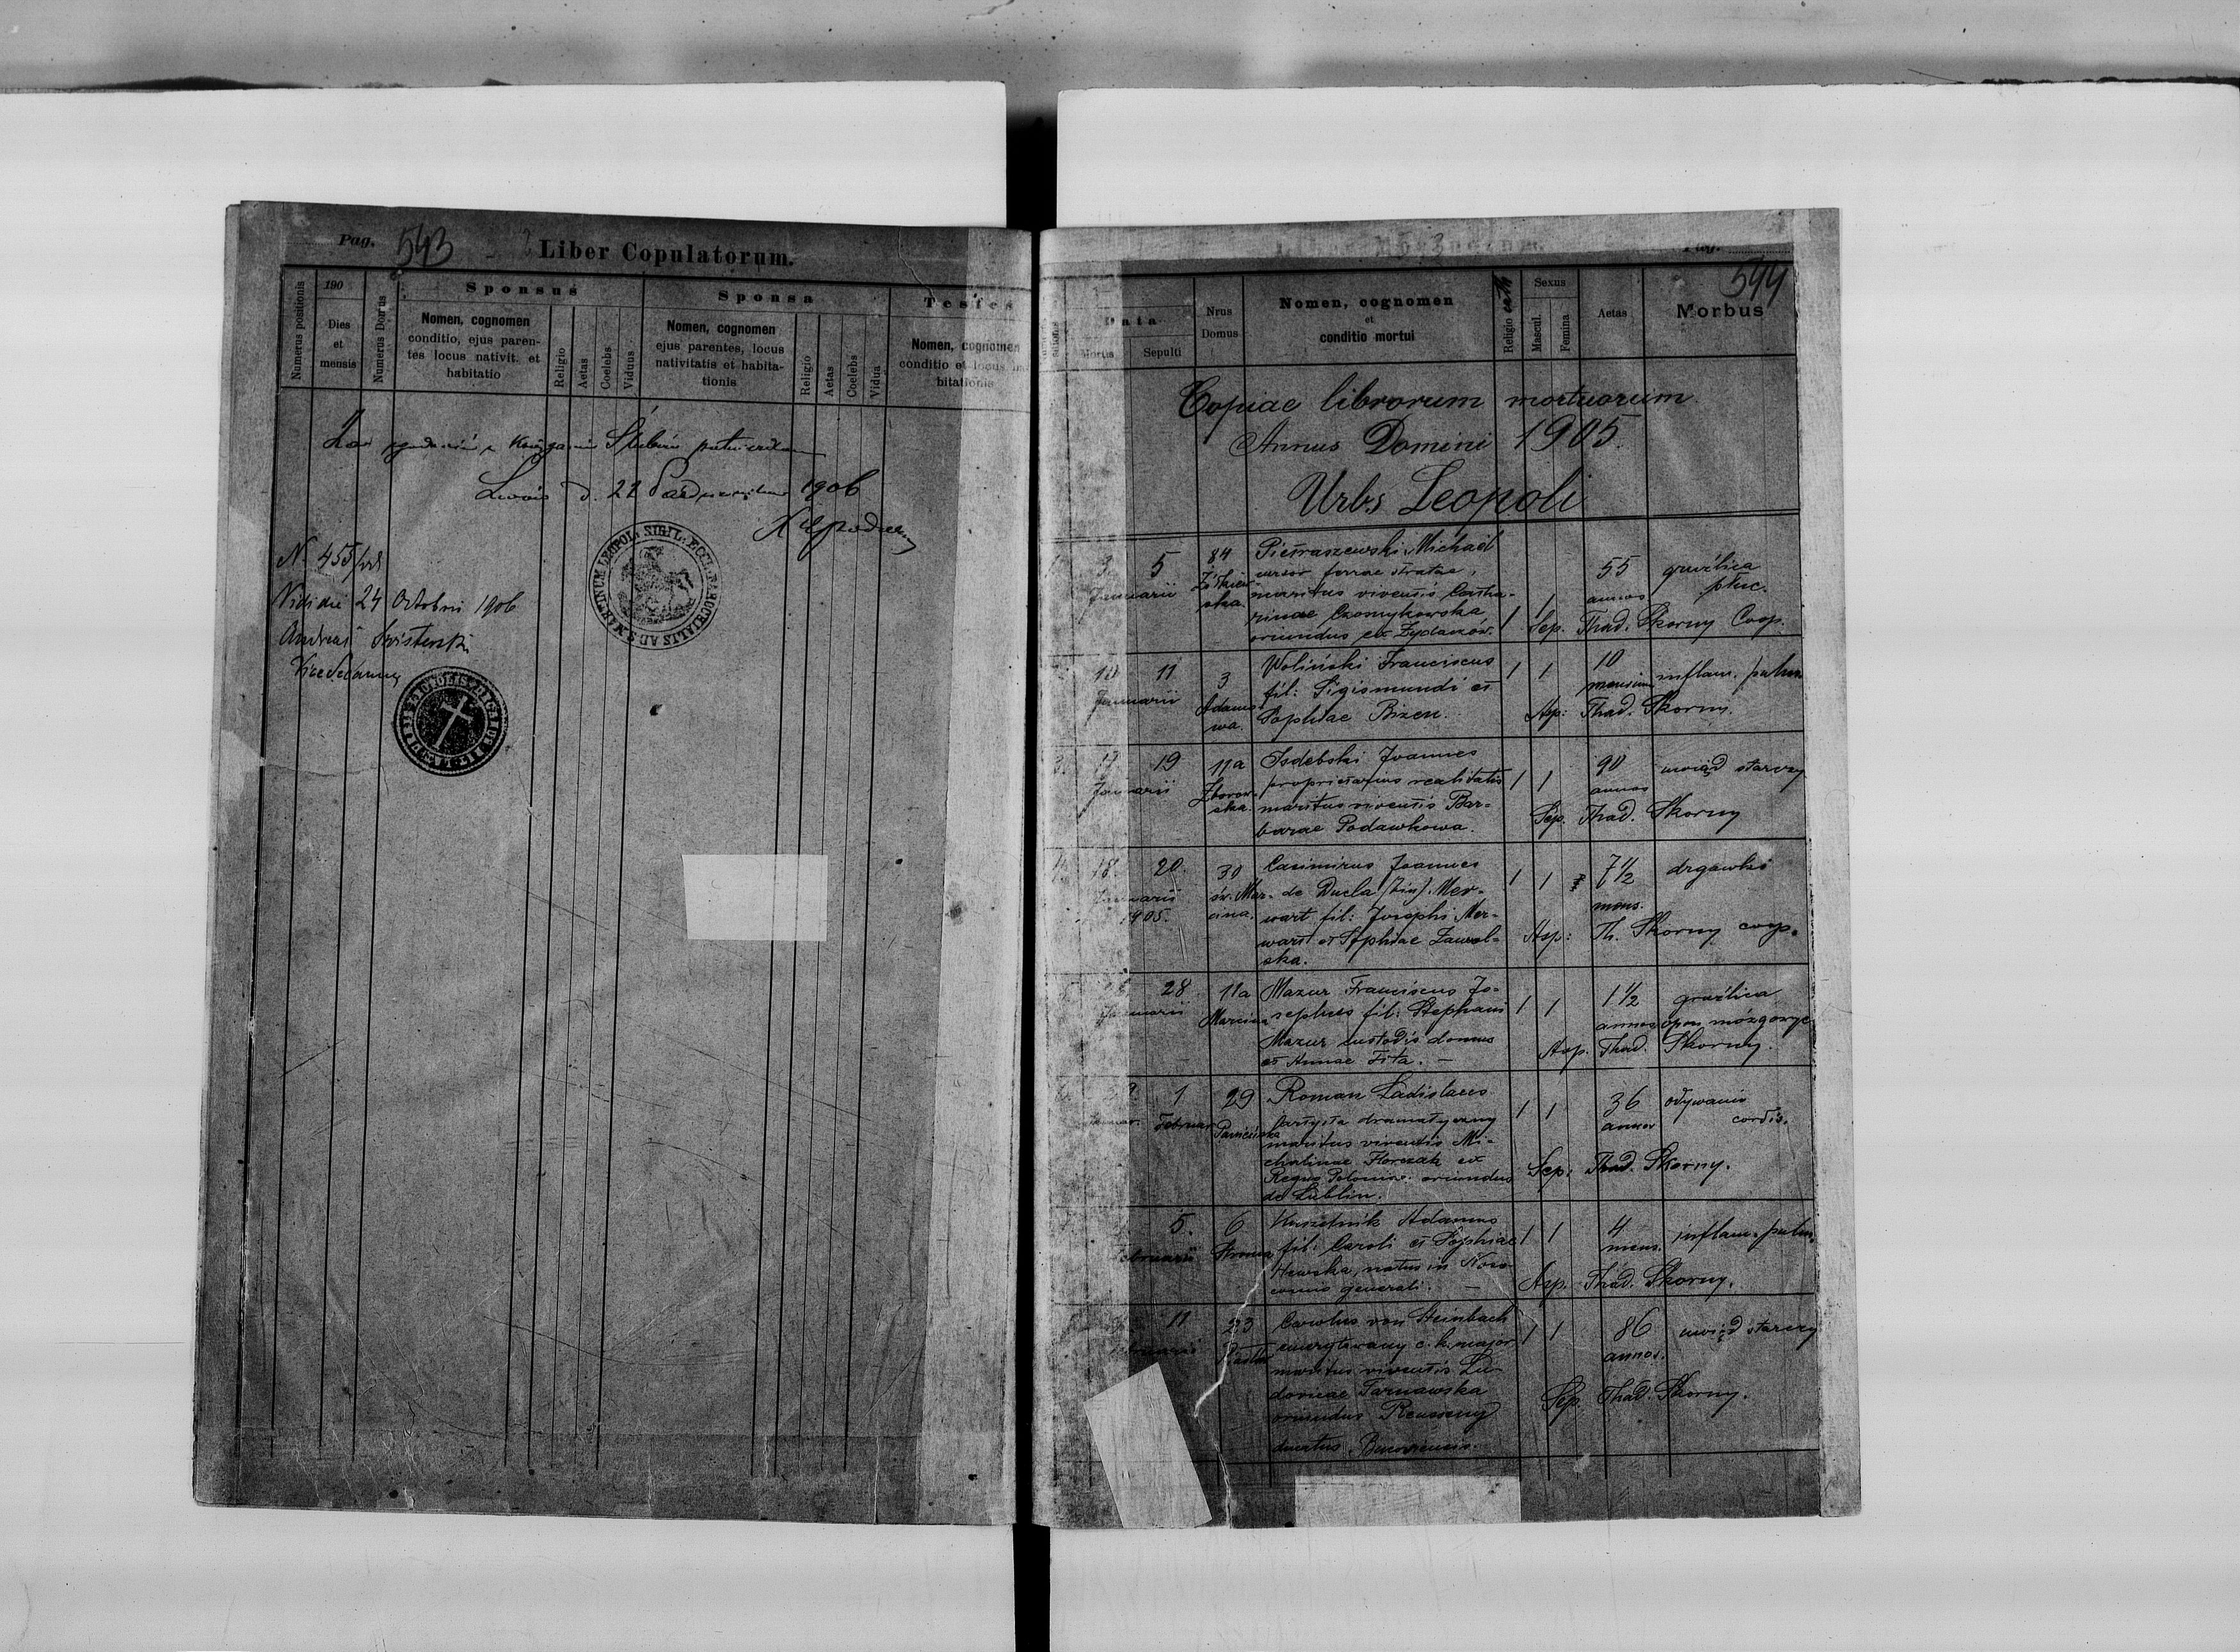 Pag. 543 Liber Copulatorum.
Numerus positionis
190
Dies
et
mensis
Numerus Domus
Sponsus
Nomen, cognomen
conditio, ejus paren-
tes locus nativit. et
habitatio
Religio
Aetas
Coelebs
Viduus
Sponsa
Nomen, cognomen
ejus parentes, locus
nativitatis et habita-
tionis
Religio
Aetas
Coelebs
Vidua
Testes
Nomen, cognomen
conditio et locus ha
bitationis
Za zgodność z Księgami Ślubów
d. 22 1906
SIGIL. ECCL. PAROCHIALIS AD S. MARTINUM LEOPOL.
N. 455
Vidi die 24 Octobris 1906
Andreas
Vicedecanus
Pag.
544
Data
Mortis
Sepulti
Nrus
Domus
Nomen, cognomen
et
conditio mortui
Religio cath
Sexus
Mascul.
Femina
Aetas
Morbus
Copiae librorum mortuorum
Annus Domini 1905.
Urbs Leopoli
3 5 84 Pietraszewski Michael 55 gruźlica
Januarii Żółkiew- cursor ferrae stratae, annos płuc.
ska. maritus viventis Catha-
rinae Czomykowska 1 1
oriundus ex Żydaczów. Sep. Thad. Skorny Coop.
10 11 3 Woliński Franciscus 1 1 10 inflam. pulm.
Januarii Adamo- fil: Sigismundi et mensium
wa. Sophiae Bizen. Asp: Thad. Skorny.
3. 17 19 11a Isdebski Joannes 90 uwiąd starczy
Januarii Zborow- proprietarius realitatis 1 1 annos
ska. maritus viventis Bar-
barae Podawkowa. Sep. Thad. Skorny
4. 18. 20. 30 Casimirus Joannes 1 1 7 1/2 drgawki
Januarii św. Mar- de Ducla Mer- mens.
1905. cina. wart fil: Josephi Mer-
wart et Sophiae Zawol- Asp: Th. Skorny coop.
ska.
28 11a Mazur Franciscus Jo- 1 1/2 gruźlica
Januarii Marcina sephus fil: Stephani 1 1 annos opon mózgowych
Mazur custodis domus
et Annae Fita. — Asp. Thad. Skorny.
1 29 Roman Ladislaus 1 1 36
Februar. artysta dramatyczny annos cordis.
maritus viventis Mi-
chalinae Florczak ex
Regno Poloniae oriundus Sep: Thad. Skorny.
de Lublin.
5. 6 Adamus 1 1 4 inflam. pulm.
Februarii fil: Caroli et Sophiae mens.
natus in Noso-
comio generali. — Asp. Thad. Skorny.
11 23 Carolus von Steinbach 1 1 86 uwiąd starczy
Februarii emerytowany c. k. major annos.
maritus viventis Lu-
dovicae Tarnawska Sep. Thad. Skorny.
oriundus
ducatus Bucoviensis.